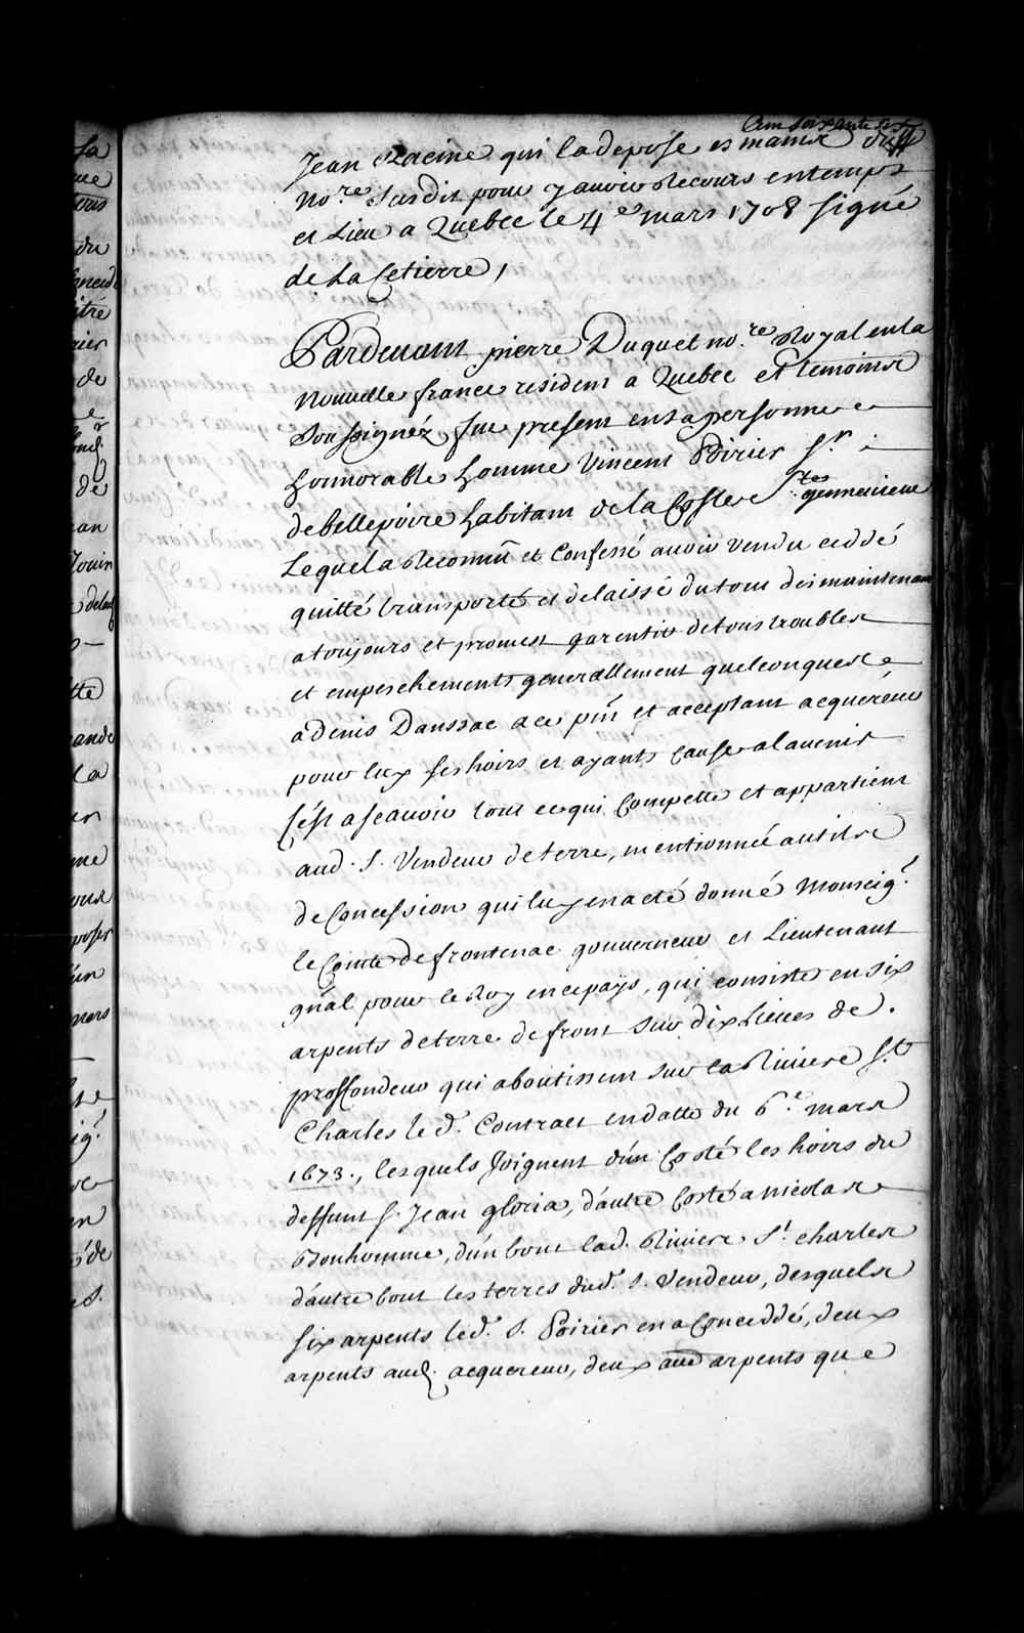 Cent soixante sept
Jean Racine qui la deposé es mains du
no.re susdit pour y avoir Recours en temps
et Lieu a Quebec le 4e mars 1708 signé
de La Cetierre,
Pardevant pierre Duquet no.re Royal en la
nouvelle france resident a Quebec et temoins
Soussignéz fut present en sa personne
honnorable homme Vincent Poirier Sr.
de bellepoire habitant de la Coste Ste genneuieue
Lequel a Reconnu et Confessé avoir vendu ceddé
quitté transporté et delaissé du tout des maintenant
a toujours et promest garentir de tous troubles
et empeschements generallement quelconques
a denis Danssac a ce pnt et acceptant acquereur
pour luy ses hoirs et ayants cause a lauenir
C'est a scauoir tout ce qui Compette et appartient
aud. S. Vendeur de terre, mentionnée au titre
de Concession qui luy en a eté donné Monseig.r
le Comte de frontenac gouuerneur et Lieutenant
gnal pour le Roy en ce pays, qui consiste en six
arpents de terre de front sur dix Lieues de.
proffondeur qui aboutissent sur la Riuiere St
Charles led. Contract en datte du 6.e mars
1673., lesquels Joignent d'un Costé les hoirs du
deffunt S. Jean gloria, d'autre Costé a nicolas
Bonhomme, d'un bout lad. Riuiere St. charles
d'autre bout les terres dud. S. Vendeur, desquels
six arpents led. S. Poirier en a Conceddé, deux
arpents aud. acquereur, deux aud arpents que